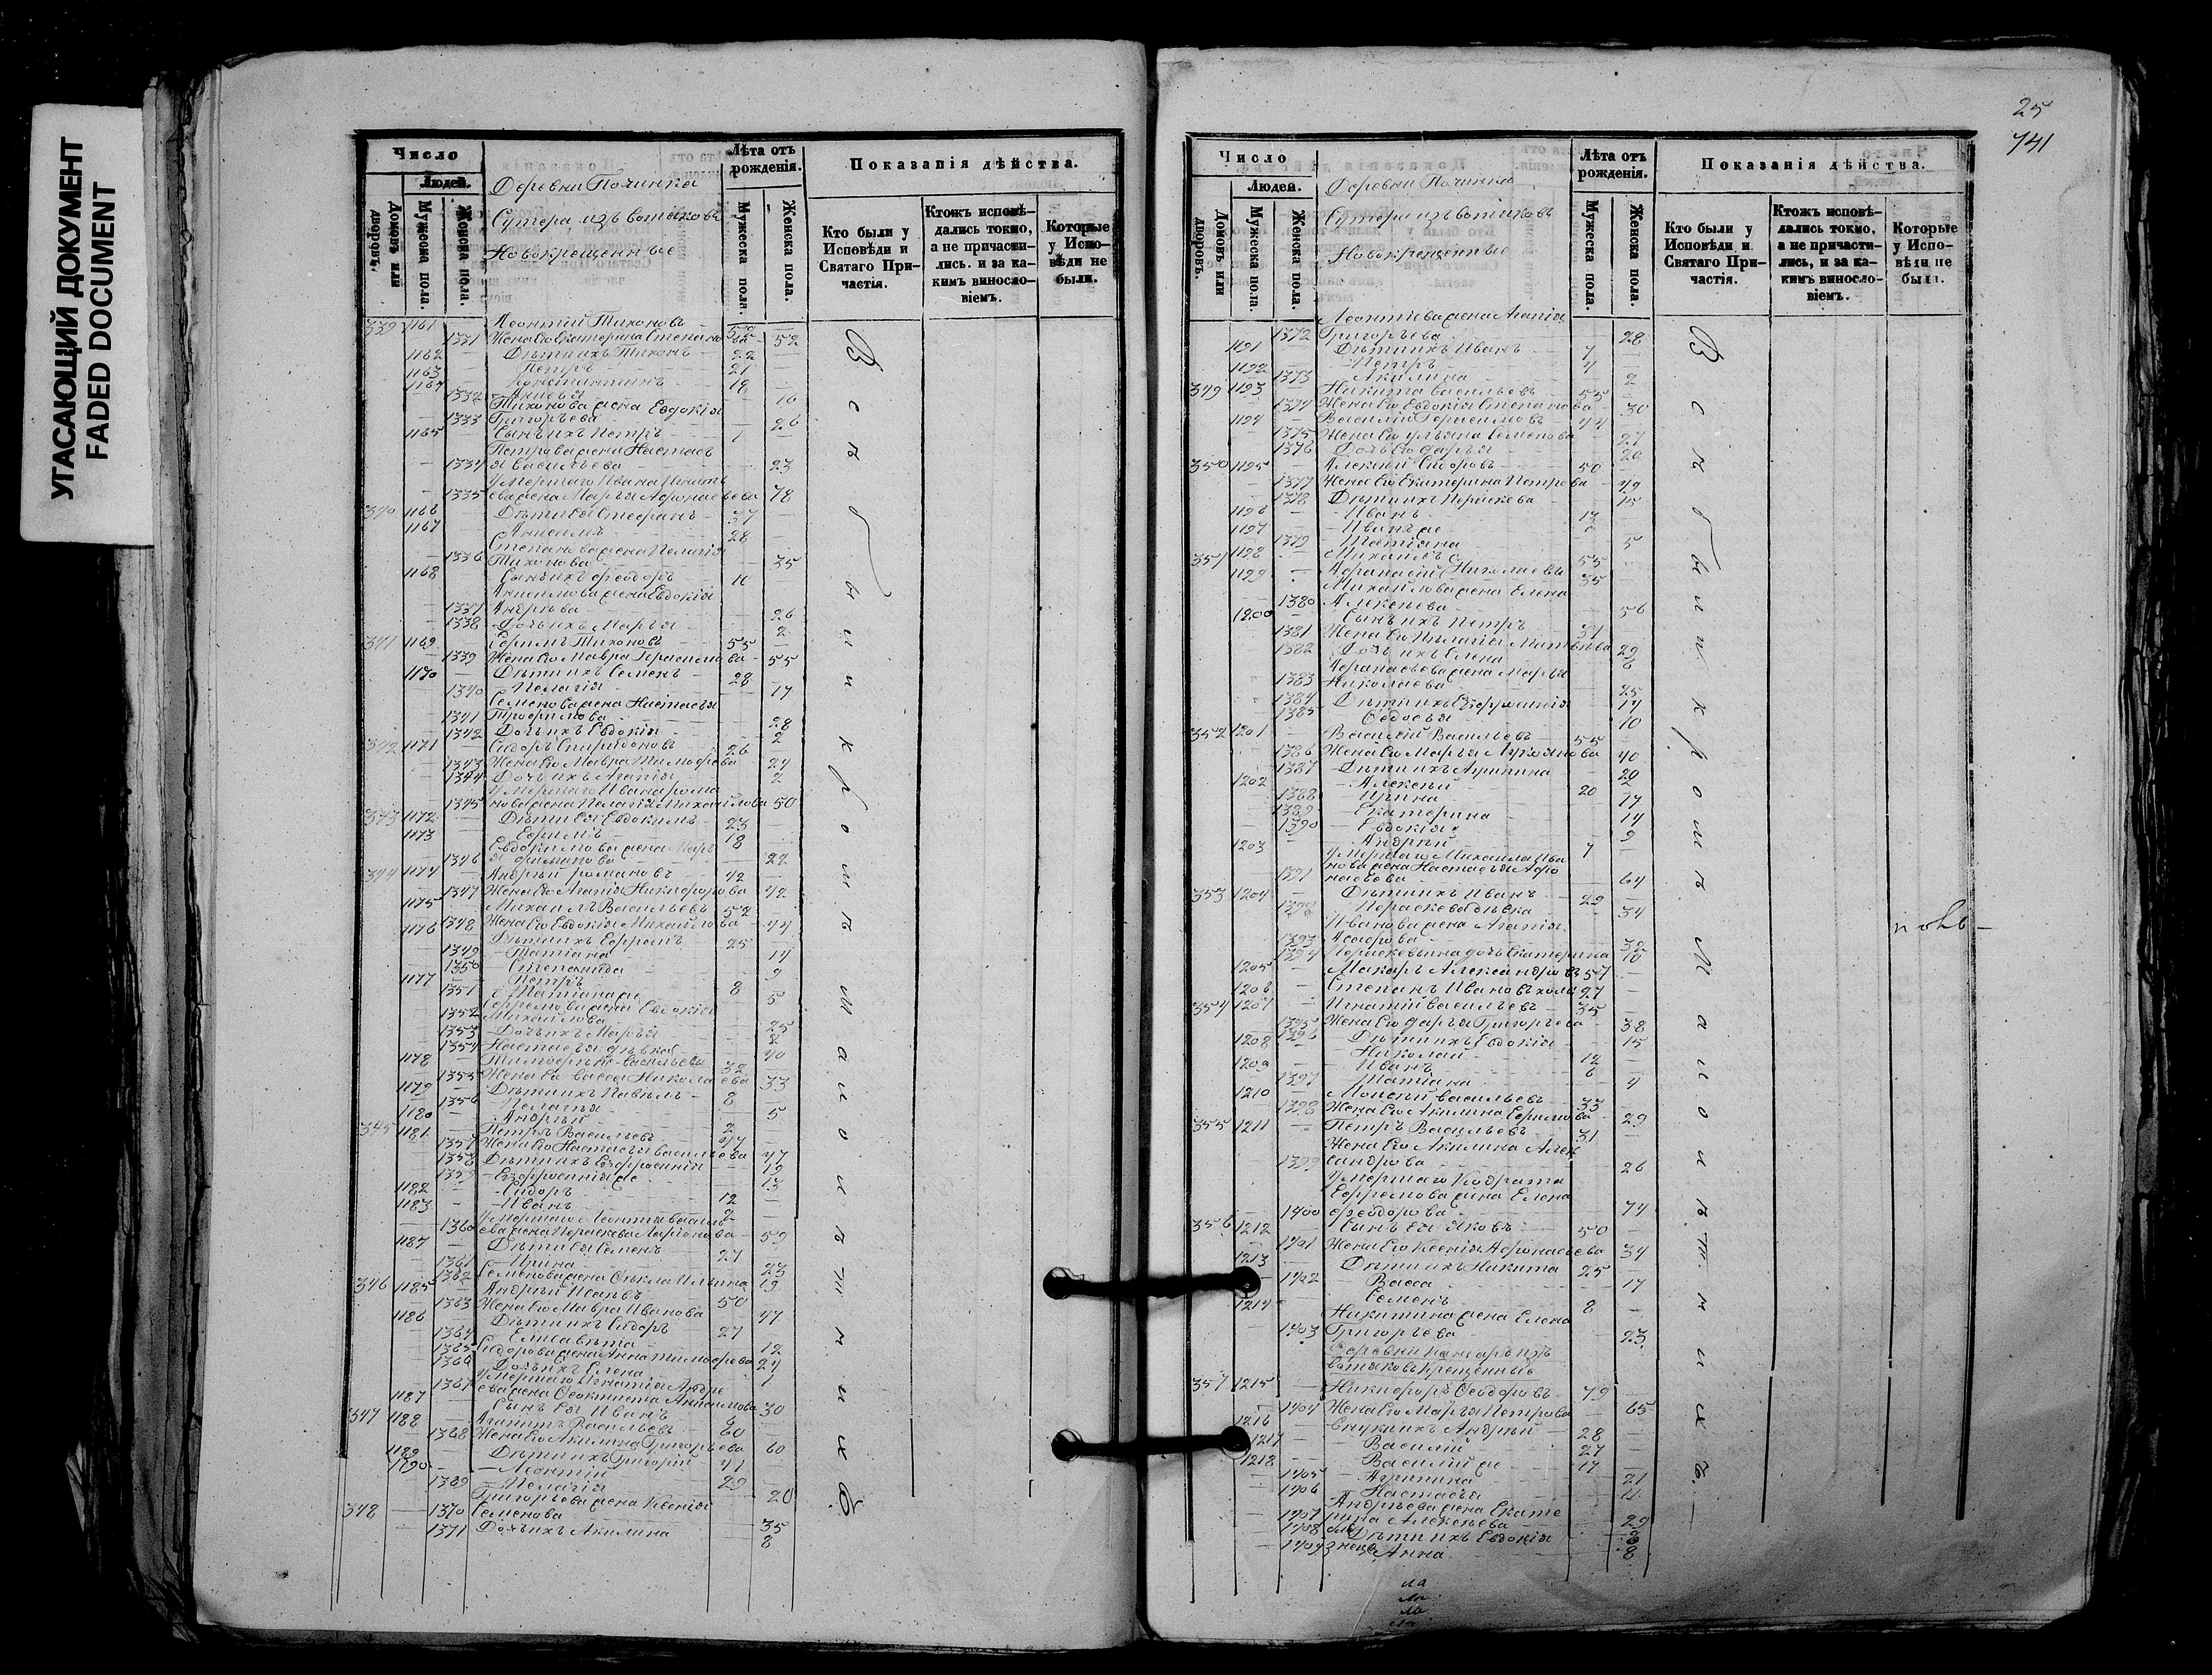 УГАСАЮЩИЙ ДОКУМЕНТ
FADED DOCUMENT
Число
Людей.
Домовъ или дворовъ.
Мужеска пола
Женска пола.
Деревни Починка
Сутера изъ вотяковъ
Новокрещенные
Лѣта отъ рожденія.
Мужеска пола.
Женска пола.
Показанія дѣйства.
Кто были у Исповѣди и Святаго Причастія.
Ктожъ исповѣдались токмо, а не причастились. и за какимъ винословіемъ.
Которые у Исповѣди не были.
339 1161 Леонтій Тихоновъ
1331 Жена Его Екатерина Степанова 52
1162 Дѣти ихъ Тихонъ 22
1163 Петръ 21
1164 Константинъ 18
1332 16
Тихонова жена Евдокія
1333 Григорьева 26
1165 Сынъ ихъ Петръ 1
Петрова жена Настась
1334 я Васильева 23
Умершаго Ивана Игнать
1335 ева жена Марья Афонасьева 78
340 1166 Дѣти Ея Стефанъ 37
1167 Анисимъ 28
Степанова жена Пелагія
1336 Тихонова 35
1168 Сынъ ихъ Феодоръ
Анисимова жена Евдокія
1337 Андрѣева 26
1338 Дочь ихъ Марья 2
341 1169 Ефимъ Тихоновъ 55
1339 Жена Его Мавра Герасимова 55
1170 Дѣти ихъ Семенъ 28
1340 Пелагія 17
Семенова жена Настасья
1341 Трофимова 28
1342 Дочь ихъ Евдокія 2
342 1171 Сидоръ Спиридоновъ 26
1343 Жена Его Мавра Тимофѣева 24
1344 Дочь ихъ Агапія 2
Умершаго Ивана Рома
1345 нова жена Пелагія Михайлова 50
343 1172 Дѣти Ея Евдокимъ 23
1173 Ефимъ 18
Евдокимова жена Марь
1346 я Филипова 22
344 1174 Андрѣй Романовъ 42
1347 Жена Его Агапія Никифорова 42
1175 Михаилъ Васильевъ 52
1348 Жена Его Евдокія Михайлова 44
1176 Дѣти ихъ Ефремъ 25
1349 Татіана 14
1350 Степанида 9
1177 Петръ 8
1351 Татіана же 5
Ефремова жена Евдокія
1352 Михайлова 25
1353 Дочь ихъ Марья 2
1354 Настасья дѣвка 40
1178 Тимофѣй Васильевъ 32
1355 Жена Его Васса Николаева 33
1179 Дѣти ихъ Павелъ 8
1356 Пелагья 5
1180 Андрѣй 2
345 1181 Петръ Васильевъ 47
1357 Жена Его Настасья Васильева 47
1358 Дѣти ихъ Евфросинія 19
1359 Евфросинія же 13
1182 Сидоръ 12
1183 Иванъ 2
Умершаго Леонтія Василь
1360 ева жена Пераскева Ларіонова 59
1187 Дѣти Ея Семенъ 27
1361 Ирина 23
1362 Семенова жена Фекла Ильина 19
346 1185 Андрѣй Исаевъ 50
1363 Жена Его Мавра Иванова 47
1186 Дѣти ихъ Сидоръ 27
1364 Елисавѣта 12
1365 Сидорова жена Анна Тимофѣева 24
1366 Дочь ихъ Елена 1
Умершаго Игнатія Андре
1367 ева жена Феоктиста Анисимова 30
1187 Сынъ Ея Иванъ 6
347 1188 Агапитъ Васильевъ 60
1368 Жена Его Акилина Григорьева 60
1189 Дѣти ихъ Григорій 41
1190 Леонтій 29
1369 Пелагія 20
Григорьева жена Ксенія
348 1370 Семенова 35
1371 Дочь ихъ Акилина 8
Всѣ были кромѣ малолѣтнихъ
25
741
Число
Людей.
Домовъ или дворовъ.
Мужеска пола
Женска пола
Деревни Починка
Сутера изъ вотяковъ
Новокрещенные
Лѣта отъ рожденія.
Мужеска пола
Женска пола.
Показанія дѣйства.
Кто были у Исповѣди и Святаго Причастія.
Ктожъ исповѣдались токмо, а не причастились, и за какимъ винословіемъ.
Которые у Исповѣди не были.
Леонтіева жена Агапія
1372 Григорьева 28
1191 Дѣти ихъ Иванъ 7
1192 Петръ 4
1373 Акилина 2
349 1193 Никита Васильевъ 55
1374 Жена Его Евдокія Степанова 30
1194 Василій Герасимовъ 44
1375 Жена Его Ульяна Семенова 27
1376 Дочь Его Дарья 20
350 1195 Алексѣй Сидоровъ 50
1377 Жена Его Екатерина Петрова 49
1378 Дѣти ихъ Пераскева 15
1196 Иванъ 13
1197 Иванъ же
1379 Татіана 5
351 1198 Михаилъ 55
1199 Афанасій Николаевы 35
Михайлова жена Елена
1380 Алексѣева 56
1200 Сынъ ихъ Петръ 31
1381 Жена Его Пелагія Матвѣева 29
1382 Дочь ихъ Елена 6
Афанасьева жена Марья
1383 Николаева 25
1384 Дѣти ихъ Евфросинія 14
1385 Федосья 10
352 1201 Василій Васильевъ 55
1386 Жена Его Марья Лукоянова 40
1387 Дѣти ихъ Агрипина 20
1202 Алексѣй 20
1388 Ирина 17
1389 Екатерина 14
1390 Евдокія 9
1203 Андрѣй 7
Умершаго Михаила Ива
нова жена Настасья Афо
1391 насьева 64
353 1204 Дѣти ихъ Иванъ 29
1392 Пераскева дѣвка 34
Иванова жена Агапія
1393 32
1394 Пераскевьина дочь Екатерина 10
1205 Макаръ Александровъ 57
1206 Степанъ Ивановъ 27
354 1207 Игнатій Васильевъ 35
1395 Жена Его Дарья Григорьева 38
1396 Дѣти ихъ Евдокія 15
1208 Николай 12
1209 Иванъ 6
1397 Татіана 4
1210 Моисей Васильевъ 33
1398 Жена Его Акилина Ефимова 29
355 1211 Петръ Васильевъ 31
Жена Его Акилина Алек
1399 сандрова 26
Умершаго Кодрата
Ефремова жена Елена
1400 Феодорова 74
356 1212 Сынъ Ея Яковъ 50
1401 Жена Его Ксенія Афонасьева 34
1213 Дѣти ихъ Никита 25
1402 Васса 17
1214 Семенъ 8
Никитина жена Елена
1403 Григорьева 23
вотяковъ Крещенные
357 1215 Никифоръ Феодоровъ 79
1404 Жена Его Марья Петрова 65
1216 Внуки ихъ Андрѣй 28
1217 Василій 27
1218 Василій же 17
1405 Агрипина 21
1406 Настасья
Андрѣева жена Екате
1407 рина Алексѣева 29
1408 Дѣти ихъ Евдокія
1409 Анна 8
Всѣ были кромѣ малолѣтнихъ